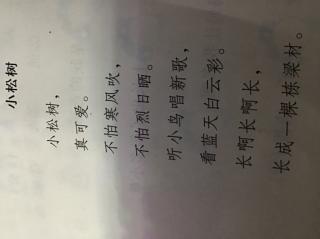 小松树
小松树，
真可爱。
不怕寒风吹，
不怕烈日晒。
听小鸟唱新歌，
看蓝天白云彩。
长啊长啊长，
长成一棵栋梁材。